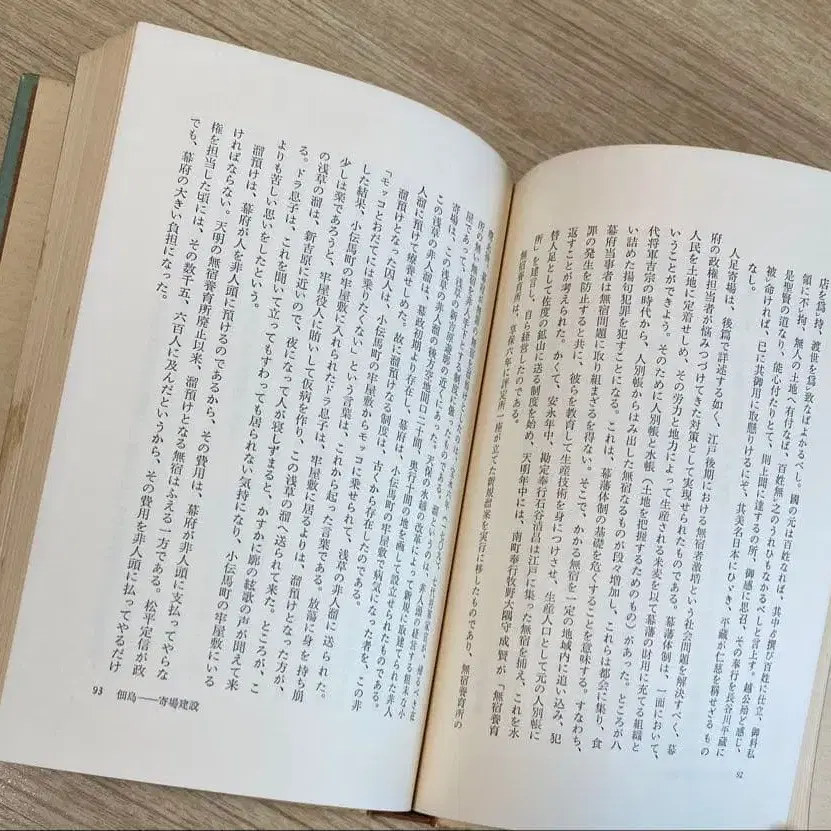 店を為持、渡世を為致なばよかるべし。國の元は百姓なれば、其中ゟ撰び百姓に仕立、御料私
領に不拘、無人の土地へ有付なば、百姓無之のうれひもなかるべしと言上す。越公始ど感じ、
是聖賢の道なり、能心付たりとて、則上聞に達するの所、御感に思召、その奉行を長谷川平蔵に
被命ければ、已に共御用に取懸りけるにぞ、其美名日本にひゞき、平蔵が仁慈を称せざるもの
なし。
人足寄場は、後篇で詳述する如く、江戸後期における無宿者激増という社会問題を解決すべく、幕
府の政権担当者が悩みつづけてきた対策として実現せられたものである。幕藩体制は、一面において、
人民を土地に定着せしめ、その労力と地力によって生産された米麦を以て幕藩の財用に充てる組織と
いうことができよう。そのために人別帳と水帳（土地を把握するためのもの）があった。ところが八
代将軍吉宗の時代から、人別帳からはみ出した無宿なるものが段々増加し、これらは都会に集り、食
い詰めた揚句犯罪を犯すことになる。これは、幕藩体制の基礎を危くすることを意味する。すなわち、
幕府当事者は無宿問題に取り組まざるを得ない。そこで、かかる無宿を一定の地域内に追い込み、犯
罪の発生を防止すると共に、彼らを教育して生産技術を身につけさせ、生産人口として元の人別帳に
返すことが考えられた。かくて、安永年中、勘定奉行石谷清昌は江戸に集った無宿を捕え、これを水
替人足として佐渡の鉱山に送る制度を始め、天明年中には、南町奉行牧野大隅守成賢が、「無宿養育
所」を建言し、自ら経営したのである。
無宿養育所は、享保六年に評定所一座が立てた新規溜案を実行に移したものであり、無宿養育所の
92
寄場は、浅草の新吉原裏地の近くにあった。天保の水越の改革によって新規に取建てられた非人
この浅草の非人溜は、溜の後方空地間口二十間、奥行十間の地を画して設立せられたものである。
人溜に預けて療養せしめた。故に溜預けなる制度は、古くから存在したのである。
溜預けとなった囚人は、小伝馬町の牢屋敷からモッコに乗せられて、浅草の非人溜に送られた。
「モッコとおだてには乗りたくない」という言葉は、これから起った言葉である。放蕩に身を持ち崩
した結果、小伝馬町の牢屋敷に入れられたドラ息子は、牢屋敷に居るよりは、溜預けとなった方が、
少しは楽であろうと、牢屋役人に賄いして仮病を作り、この浅草の溜へ送られて来た。ところが、こ
の浅草の溜は、新吉原に近いので、夜になって人が寝しずまると、かすかに廓の絃歌の声が聞えて来
る。ドラ息子は、これを聞いて立ってもすわっても居られない気持になり、小伝馬町の牢屋敷にいる
よりも苦しい思いをしたという。
溜預けは、幕府が人を非人頭に預けるのであるから、その費用は、幕府が非人頭に支払ってやらな
ければならない。天明の無宿養育所廃止以来、溜預けとなる無宿はふえる一方である。松平定信が政
権を担当した頃には、その数千五、六百人に及んだというから、その費用を非人頭に払ってやるだけ
でも、幕府の大きい負担になった。
93 佃島——寄場建設